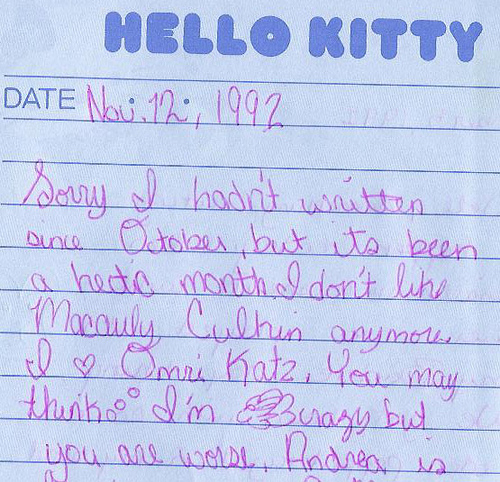 HELLO KITTY
DATE Nov. 12, 1992
Sorry I hadn't written
since October, but its been
a hectic month I don't like
Macauly Culkin anymore
I ♡ Omri Katz. You may
think I'm crazy but
you are worse. Andrea is